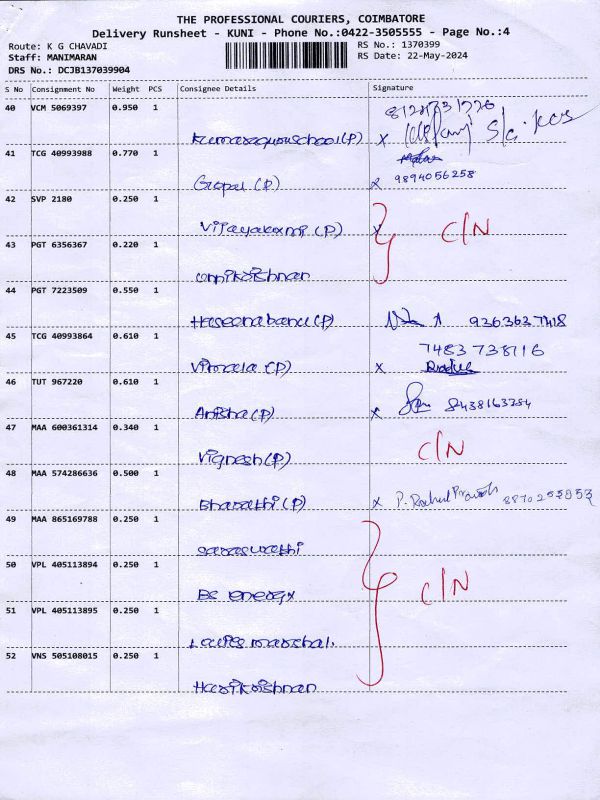 THE PROFESSIONAL COURIERS, COIMBATORE
Delivery Runsheet - KUNI - Phone No.:0422-3505555 - Page No.:4
Route: K G CHAVADI
RS No.: 1370399
Staff: MANIMARAN
RS Date: 22-May-2024
DRS No.: DCJB137039904
S No Consignment No Weight PCS Consignee Details Signature
40 VCM 5069397 0.950 1
(P) x
41 TCG 40993988 0.770 1
Gopal (P) x 9894056258
42 SVP 2180 0.250 1
Vijayalaxmi (P) x C/N
43 PGT 6356367 0.220 1
unnikrishnan
44 PGT 7223509 0.550 1
Haseenabanu (P) 9363637418
45 TCG 40993864 0.610 1
7483738116
Vimala (P) x
46 TUT 967220 0.610 1
Anisha (P) x 8438163284
47 MAA 600361314 0.340 1
Vignesh (P) C/N
48 MAA 574286636 0.500 1
Bharathi (P) x P. Rahul
49 MAA 865169788 0.250 1
saraswathi
50 VPL 405113894 0.250 1
Bs energy C/N
51 VPL 405113895 0.250 1
marshal.
52 VNS 505108015 0.250 1
Harikrishnan